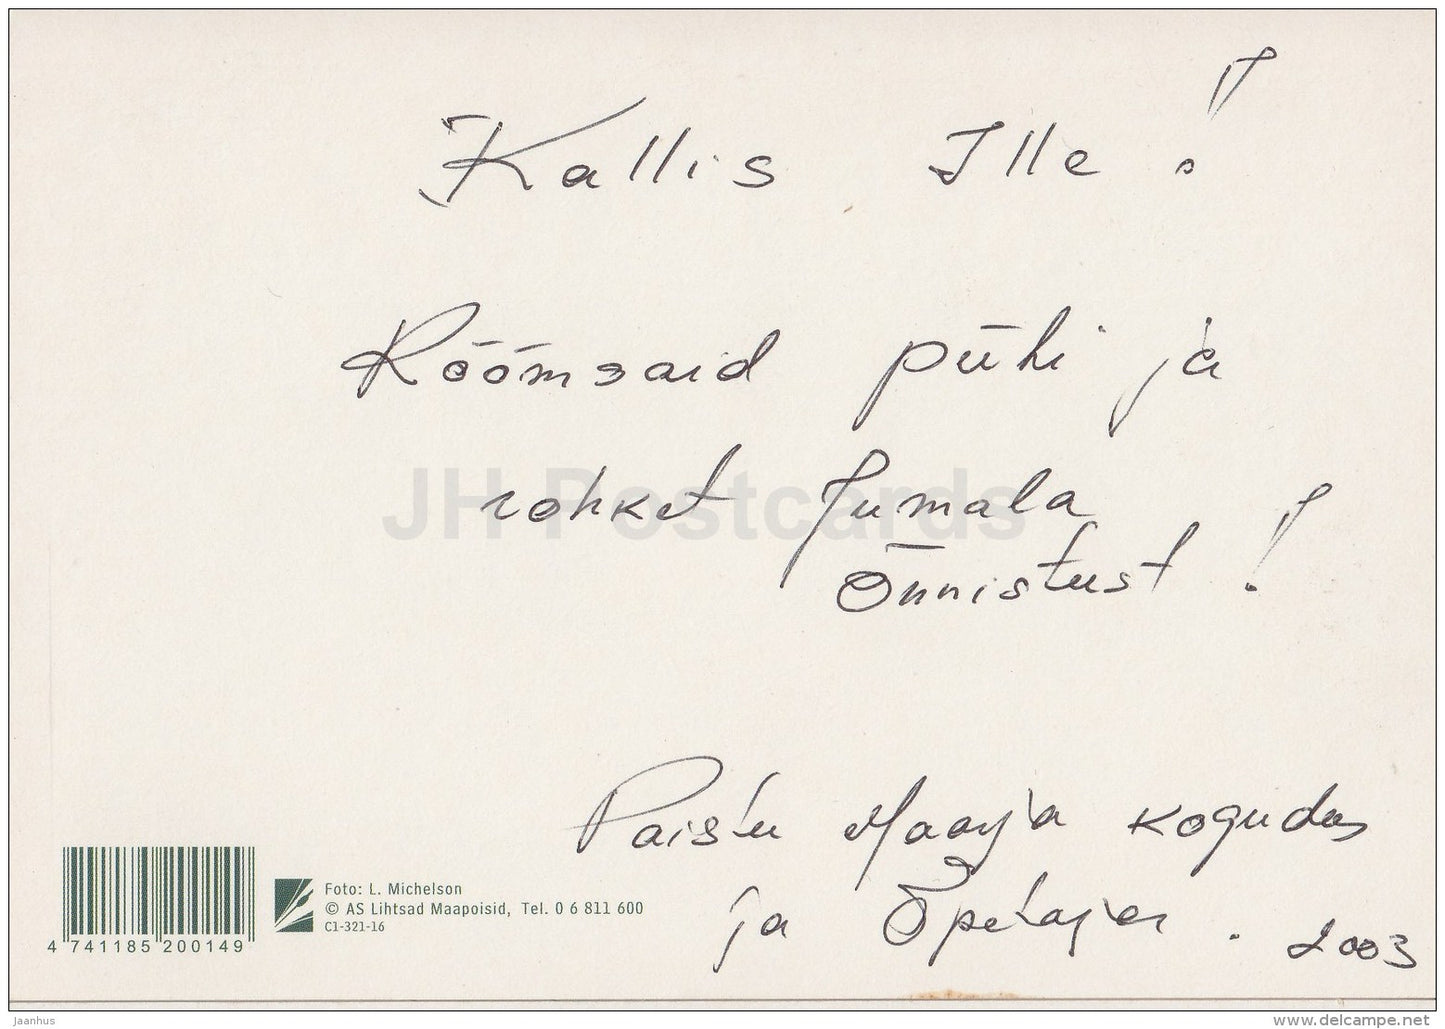 Kallis Ille!
Rõõmsaid pühi ja
rohket Jumala
Õnnistust!
Paistu Maarja kogudus
ja Õpetaja. 2003
Foto: L. Michelson
© AS Lihtsad Maapoisid, Tel. 0 6 811 600
C1-321-16
4 741185 200149
JH Postcards
jaanhus
www.delcampe.net